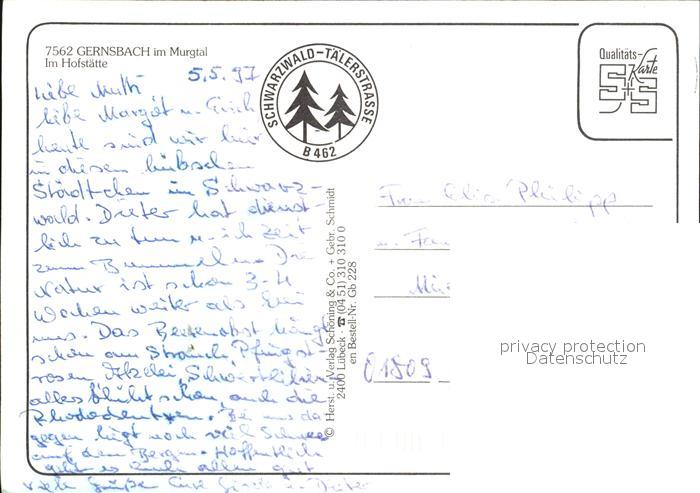 7562 GERNSBACH im Murgtal
Im Hofstätte
5.5.97
Liebe Mutti
liebe Margot u. Erich
heute sind wir hier
in diesem hübschen
Städtchen im Schwarz-
wald. Dieter hat dienst-
lich zu tun u. ich Zeit
zum Bummeln. Die
Natur ist schon 3-4
Wochen weiter als bei
uns. Das Beerenobst hängt
schon am Strauch, Pfingst-
rosen, Azalei, Schwertlilien
alles blüht schon, auch die
Rhododentren. Bei uns da
gegen liegt noch viel Schnee
auf den Bergen. Hoffentlich
geht es Euch allen gut
viele Grüße Eure u. Dieter
SCHWARZWALD-TÄLERSTRASSE
B 462
© Herst. u. Verlag Schöning & Co. + Gebr. Schmidt
2400 Lübeck · ☎ (04 51) 310 310 0
en Bestell-Nr. Gb 228
Qualitäts-
Karte
S+S
Frau Philipp
u.
01809
privacy protection
Datenschutz